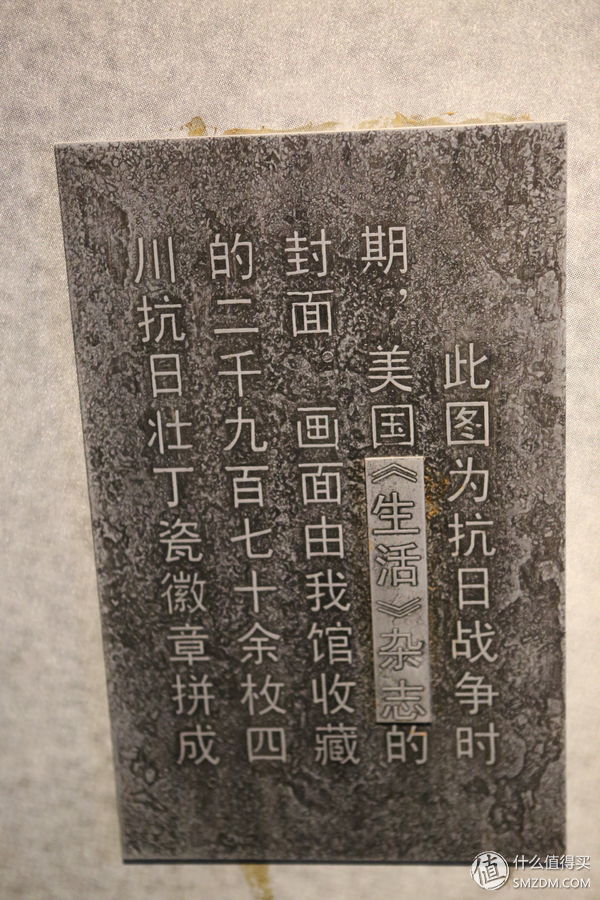 此图为抗日战争时
期，美国《生活》杂志的
封面。画面由我馆收藏
的二千九百七十余枚四
川抗日壮丁瓷徽章拼成
值 什么值得买
SMZDM.COM